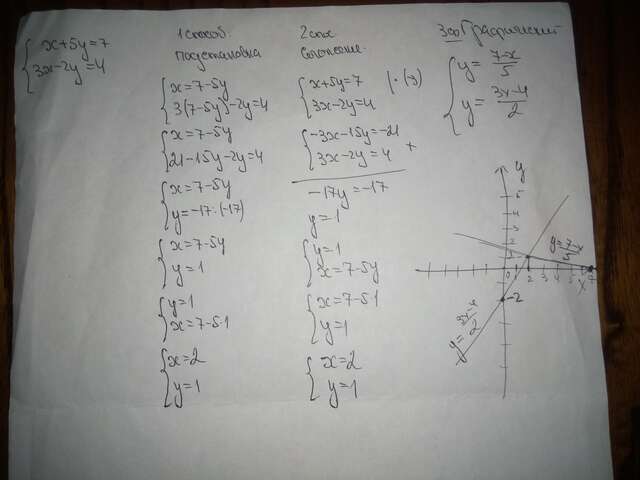 { x+5y=7
3x-2y=4
1 способ
подстановка
{ x=7-5y
3(7-5y)-2y=4
{ x=7-5y
21-15y-2y=4
{ x=7-5y
y=-17:(-17)
{ x=7-5y
y=1
{ y=1
x=7-5·1
{ x=2
y=1
2 спос
сложение
{ x+5y=7 |·(-3)
3x-2y=4
{ -3x-15y=-21
3x-2y=4 +
-17y=-17
y=1
{ y=1
x=7-5y
{ x=7-5·1
y=1
{ x=2
y=1
3 спо
{ y=7-x/5
y=3x-4/2
y
y=7-x/5
0
2
3
4
5
7
x
-2